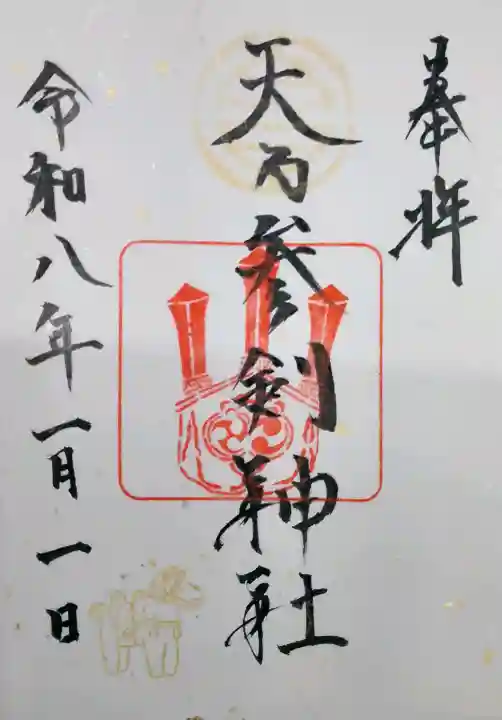 奉拝
天乃参剣神社
令和八年一月一日